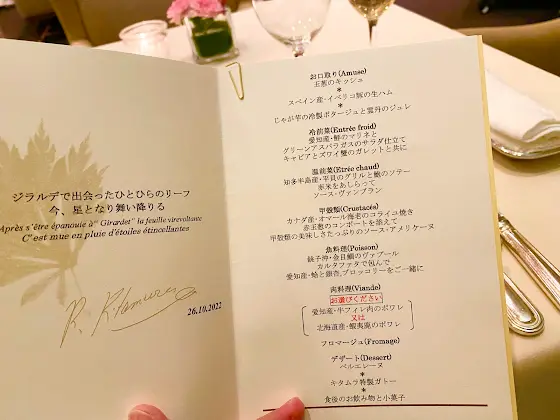 ジラルデで出会ったひとひらのリーフ
今、星となり舞い降りる
Après s'être épanouie à" Girardet" la feuille virevoltante
C'est mue en pluie d'étoiles étincellantes
R. Kitamura
26.10.2022
お口取り(Amuse)
玉葱のキッシュ
*
スペイン産・イベリコ豚の生ハム
*
じゃが芋の冷製ポタージュと雲丹のジュレ
冷前菜(Entrée froid)
愛知産・鮮のマリネと
グリーンアスパラガスのサラダ仕立て
キャビアとズワイ蟹のガレットと共に
温前菜(Etrée chaud)
知多半島産・平貝のグリルと鮑のソテー
赤米をあしらって
ソース・ヴァンブラン
甲殻類(Crustacés)
カナダ産・オマール海老のコライユ焼き
赤玉葱のコンポートを添えて
甲殻類の美味しさたっぷりのソース・アメリケーヌ
魚料理(Poisson)
銚子沖・金目鯛のヴァプール
カルタファタで包んで
愛知産・蛤と銀杏,ブロッコリーをご一緒に
肉料理(Viande)
お選びください
愛知産・牛フィレ肉のポワレ
又は
北海道産・蝦夷鹿のポワレ
フロマージュ(Fromage)
デザート(Dessert)
ベルエレーヌ
*
キタムラ特製ガトー
*
食後のお飲み物と小菓子